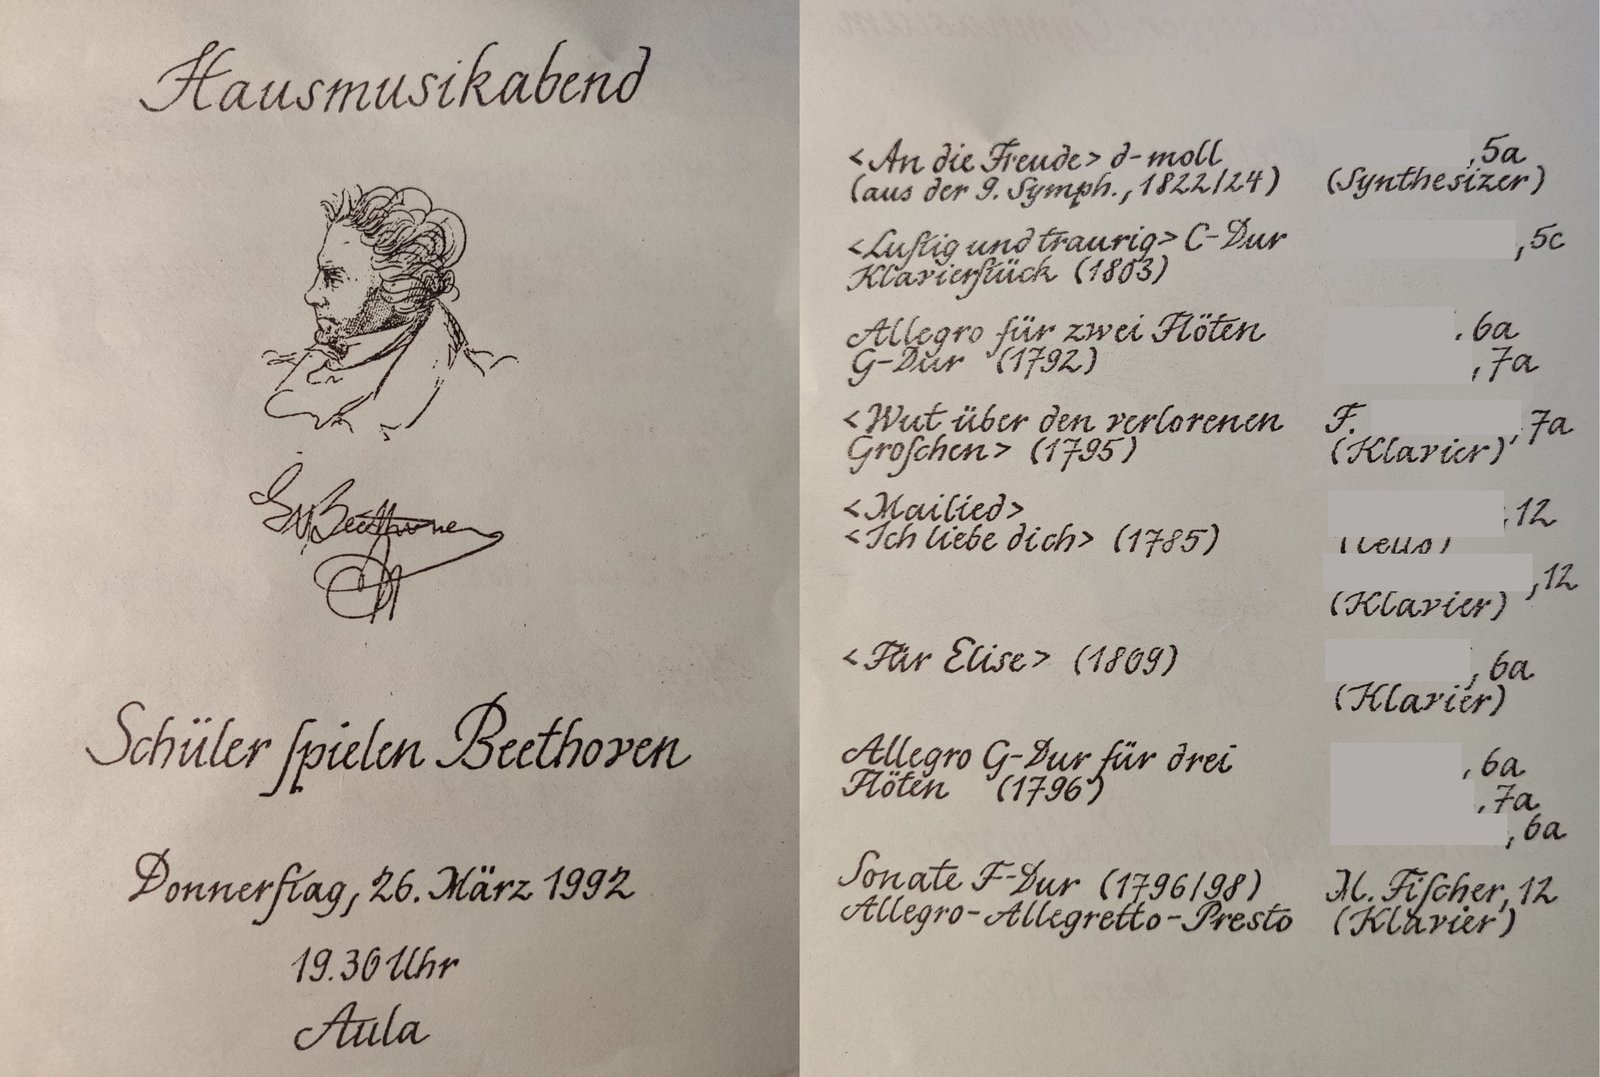 Hausmusikabend
L v Beethoven
Schüler spielen Beethoven
Donnerstag, 26. März 1992
19.30 Uhr
Aula
<An die Freude> d-moll , 5a
(aus der 9. Symph., 1822/24) (Synthesizer)
<Lustig und traurig> C-Dur , 5c
Klavierstück (1803)
Allegro für zwei Flöten . 6a
G-Dur (1792) , 7a
<Wut über den verlorenen F. , 7a
Groschen> (1795) (Klavier)
<Mailied> , 12
<Ich liebe dich> (1785) (Cello)
, 12
(Klavier)
<Für Elise> (1809) , 6a
(Klavier)
Allegro G-Dur für drei , 6a
Flöten (1796) , 7a
, 6a
Sonate F-Dur (1796/98) M. Fischer, 12
Allegro-Allegretto-Presto (Klavier)